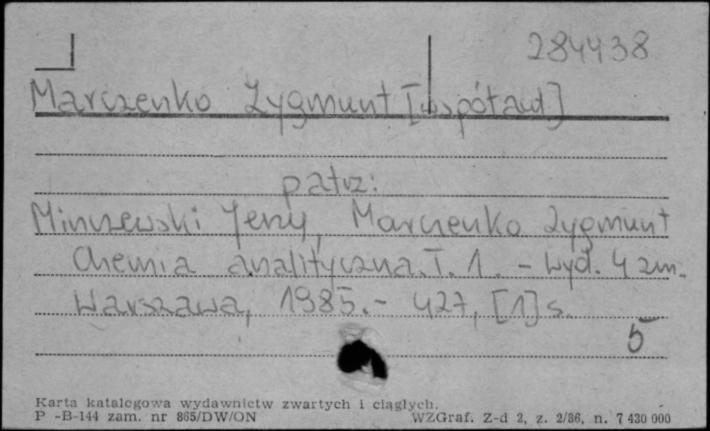 284438
Marczenko Zygmunt [współaut]
patrz:
Minczewski Jerzy, Marczenko Zygmunt
Chemia analityczna. T. 1. - Wyd. 4 zm.
Warszawa, 1985. - 427, [1] s.
5
Karta katalogowa wydawnictw zwartych i ciągłych.
P -B-144 zam. nr 865/DW/ON WZGraf. Z-d 2, z. 2/86, n. 7 430 000